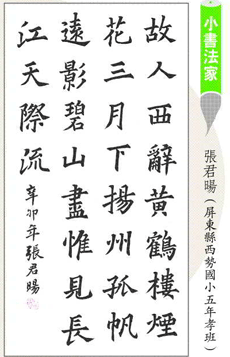 小書法家
張君暘（屏東縣西勢國小五年孝班）
故人西辭黃鶴樓煙
花三月下揚州孤帆
遠影碧山盡惟見長
江天際流
辛卯年張君暘